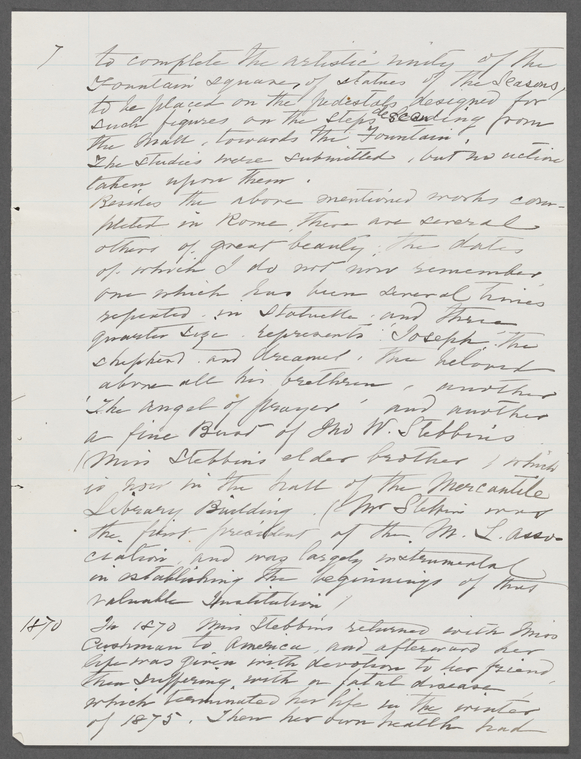 7 to complete the artistic unity of the
Fountain square, of statues of the Seasons,
to be placed on the pedestals designed for
such figures on the steps descending from
the Mall, towards the Fountain.
The studies were submitted, but no action
taken upon them.
Besides the above mentioned works com-
pleted in Rome, there are several
others of great beauty, the dates
of which I do not now remember
one which has been several times
repeated in Statuette and three
quarter size represents 'Joseph, the
shepherd and dreamer, the beloved
above all his brethren', another
'The angel of prayer' and another
a fine Bust of Jno W. Stebbins
(Miss Stebbins elder brother) which
is now in the hall of the Mercantile
Library Building. (Mr Stebbins was
the first president of the M. L. asso-
ciation, and was largely instrumental
in establishing the beginnings of that
valuable Institution)
1870 In 1870 Miss Stebbins returned with Miss
Cushman to America, and afterward her
life was given with devotion to her friend,
then suffering with a fatal disease,
which terminated her life in the winter
of 1875. Then her own health had